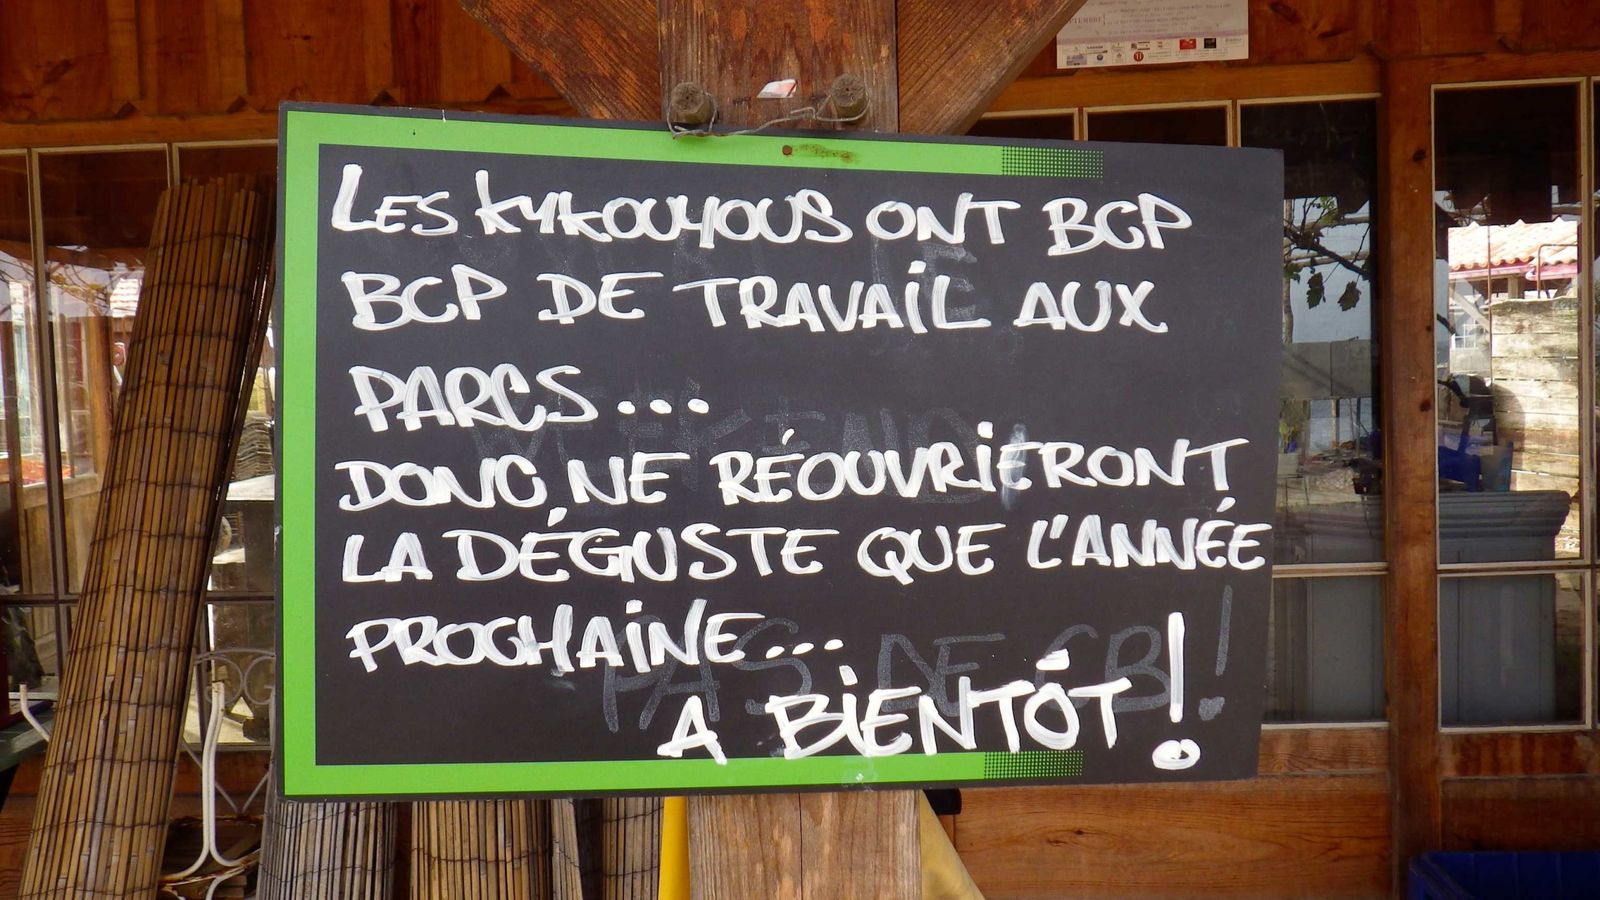 LES KYKOUYOUS ONT BCP
BCP DE TRAVAIL AUX
PARCS...
DONC NE RÉOUVRIERONT
LA DÉGUSTE QUE L'ANNÉE
PROCHAINE...
A BIENTÔT !
PAS DE CB !